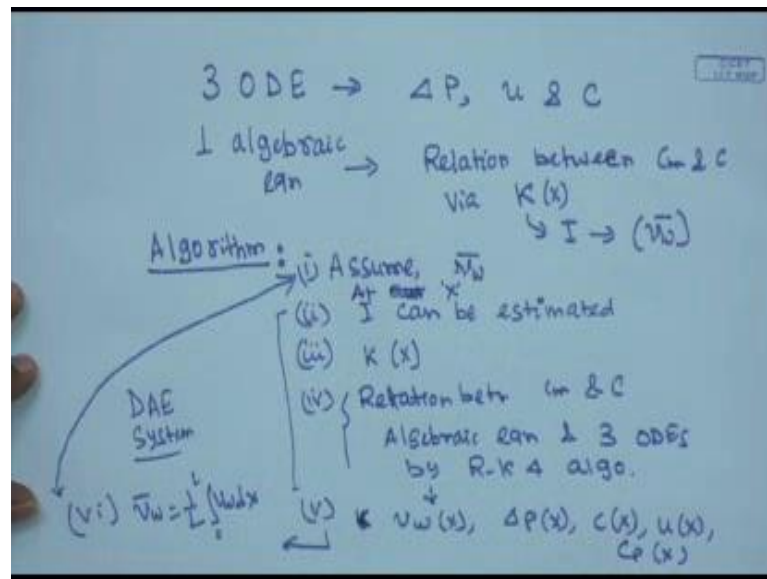 3 ODE → ΔP, u & C
1 algebraic → Relation between Cm & C
eqn via K(x)
↳ I → (v̄w)
Algorithm :
(i) Assume, v̄w
At 'x'
(ii) I can be estimated
(iii) K(x)
(iv) Relation betn Cm & C
Algebraic eqn & 3 ODEs
by R-K 4 algo.
DAE
System
(v) vw(x), ΔP(x), C(x), u(x),
Cp(x)
(vi) v̄w = 1/L ∫₀ᴸ vw dx